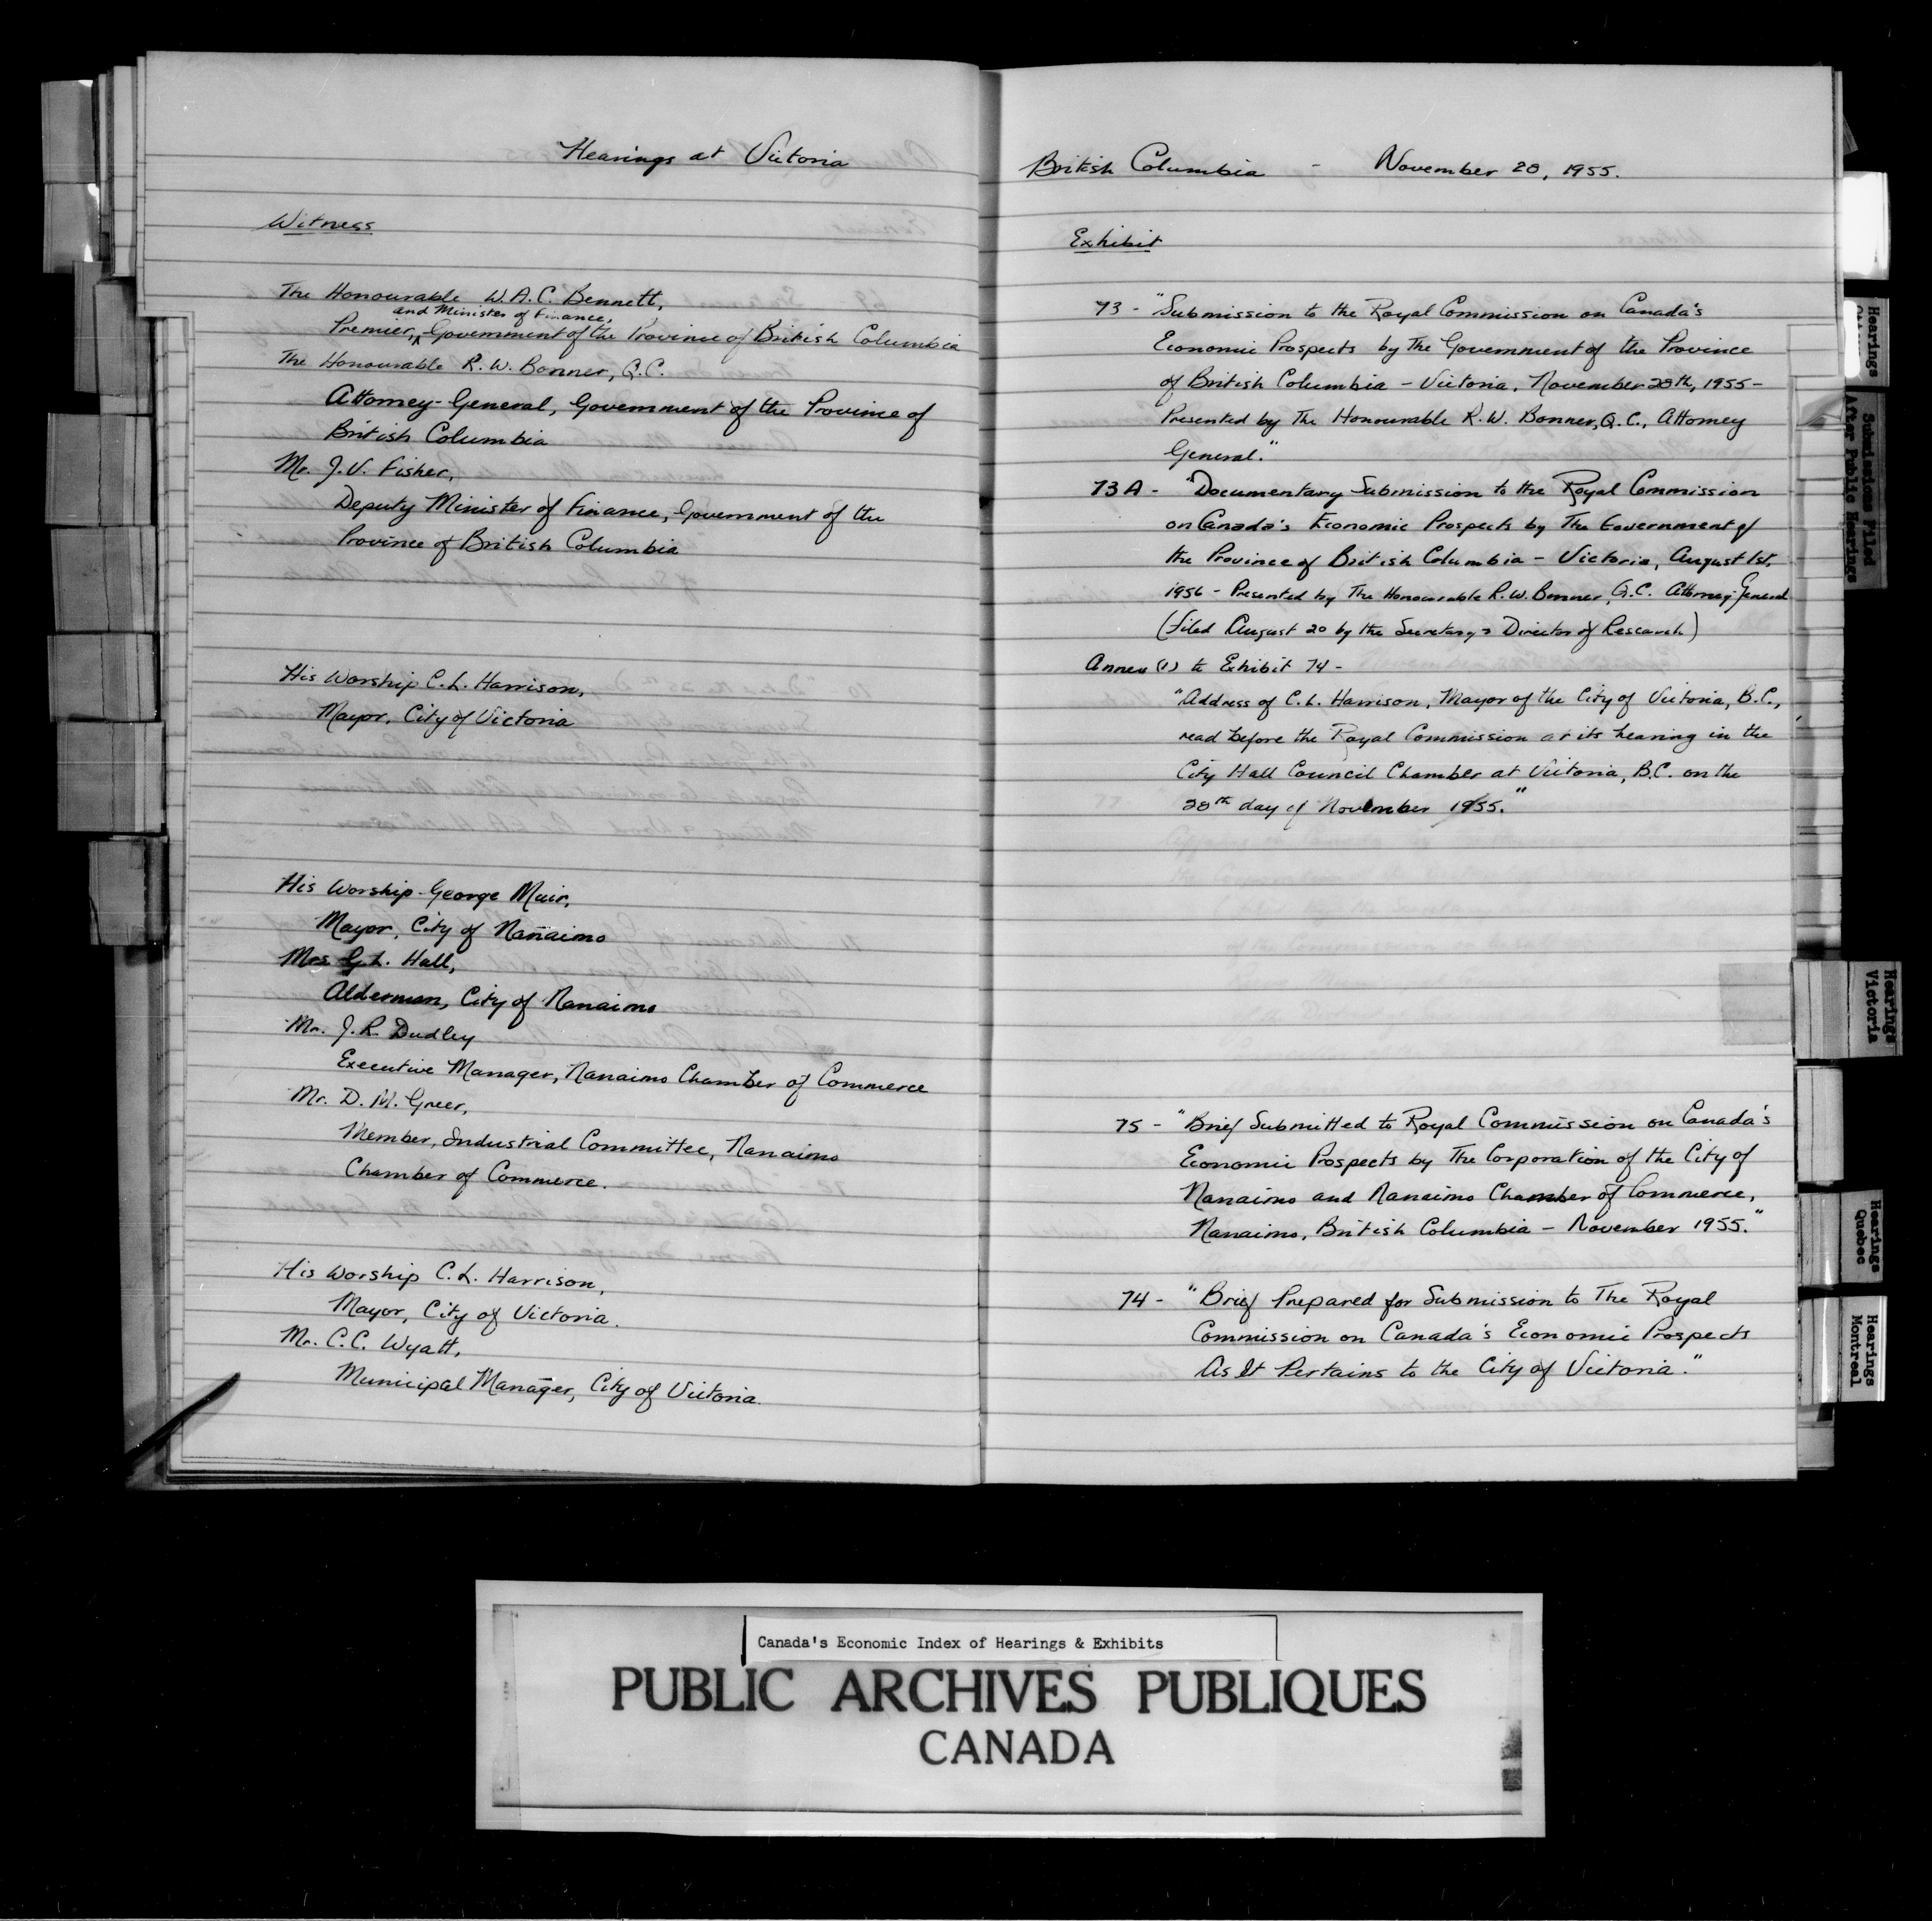 Hearings at Victoria
Witness
The Honourable W.A.C. Bennett,
and Minister of Finance,
Premier, Government of the Province of British Columbia
The Honourable R.W. Bonner, Q.C.
Attorney-General, Government of the Province of
British Columbia
Mr. J.V. Fisher,
Deputy Minister of Finance, Government of the
Province of British Columbia
His Worship C.L. Harrison,
Mayor, City of Victoria
His Worship George Muir,
Mayor, City of Nanaimo
Mrs G.L. Hall,
Alderman, City of Nanaimo
Mr. J.R. Dudley
Executive Manager, Nanaimo Chamber of Commerce
Mr. D.M. Greer,
Member, Industrial Committee, Nanaimo
Chamber of Commerce.
His Worship C.L. Harrison,
Mayor, City of Victoria.
Mr. C.C. Wyatt,
Municipal Manager, City of Victoria.
British Columbia - November 28, 1955.
Exhibit
73 - "Submission to the Royal Commission on Canada's
Economic Prospects by The Government of the Province
of British Columbia - Victoria, November 28th, 1955 -
Presented by The Honourable R.W. Bonner, Q.C., Attorney
General."
73A - "Documentary Submission to the Royal Commission
on Canada's Economic Prospects by The Government of
the Province of British Columbia - Victoria, August 1st,
1956 - Presented by The Honourable R.W. Bonner, Q.C. Attorney-General
(filed August 20 by the Secretary & Director of Research)
Annex (1) to Exhibit 74 -
"Address of C.L. Harrison, Mayor of the City of Victoria, B.C.,
read before the Royal Commission at its hearing in the
City Hall Council Chamber at Victoria, B.C. on the
28th day of November 1955."
75 - "Brief Submitted to Royal Commission on Canada's
Economic Prospects by The Corporation of the City of
Nanaimo and Nanaimo Chamber of Commerce,
Nanaimo, British Columbia - November 1955."
74 - "Brief Prepared for Submission to The Royal
Commission on Canada's Economic Prospects
As It Pertains to the City of Victoria."
Hearings
Submissions Filed
After Public Hearings
Hearings
Victoria
Hearings
Quebec
Hearings
Montreal
Canada's Economic Index of Hearings & Exhibits
PUBLIC ARCHIVES PUBLIQUES
CANADA